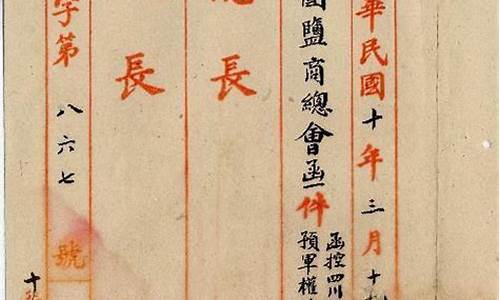 華民國十年三月十
國鹽商總會函一件
函控四川
預軍權
長
長
字第八六七號